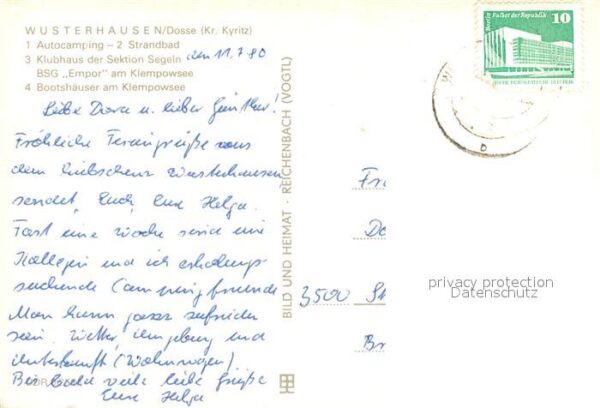 WUSTERHAUSEN/Dosse (Kr. Kyritz)
1 Autocamping – 2 Strandbad
3 Klubhaus der Sektion Segeln
BSG „Empor" am Klempowsee
4 Bootshäuser am Klempowsee
den 11.7.80
Liebe Dora u. lieber Günther!
Fröhliche Feriengrüße aus
dem hübschen Wusterhausen
sendet Euch Eure Helga.
Fast eine Woche sind eine
Kollegin und ich erholungs-
suchende Campingfreunde
Man kann ganz zufrieden
sein. Wetter, Umgebung und
Unterkunft (Wohnwagen).
Bis bald viele liebe Grüße
Eure Helga
BILD UND HEIMAT · REICHENBACH (VOGTL)
Berlin, Palast der Republik
10
DDR
Fr
Do
3500 St
Br
privacy protection
Datenschutz